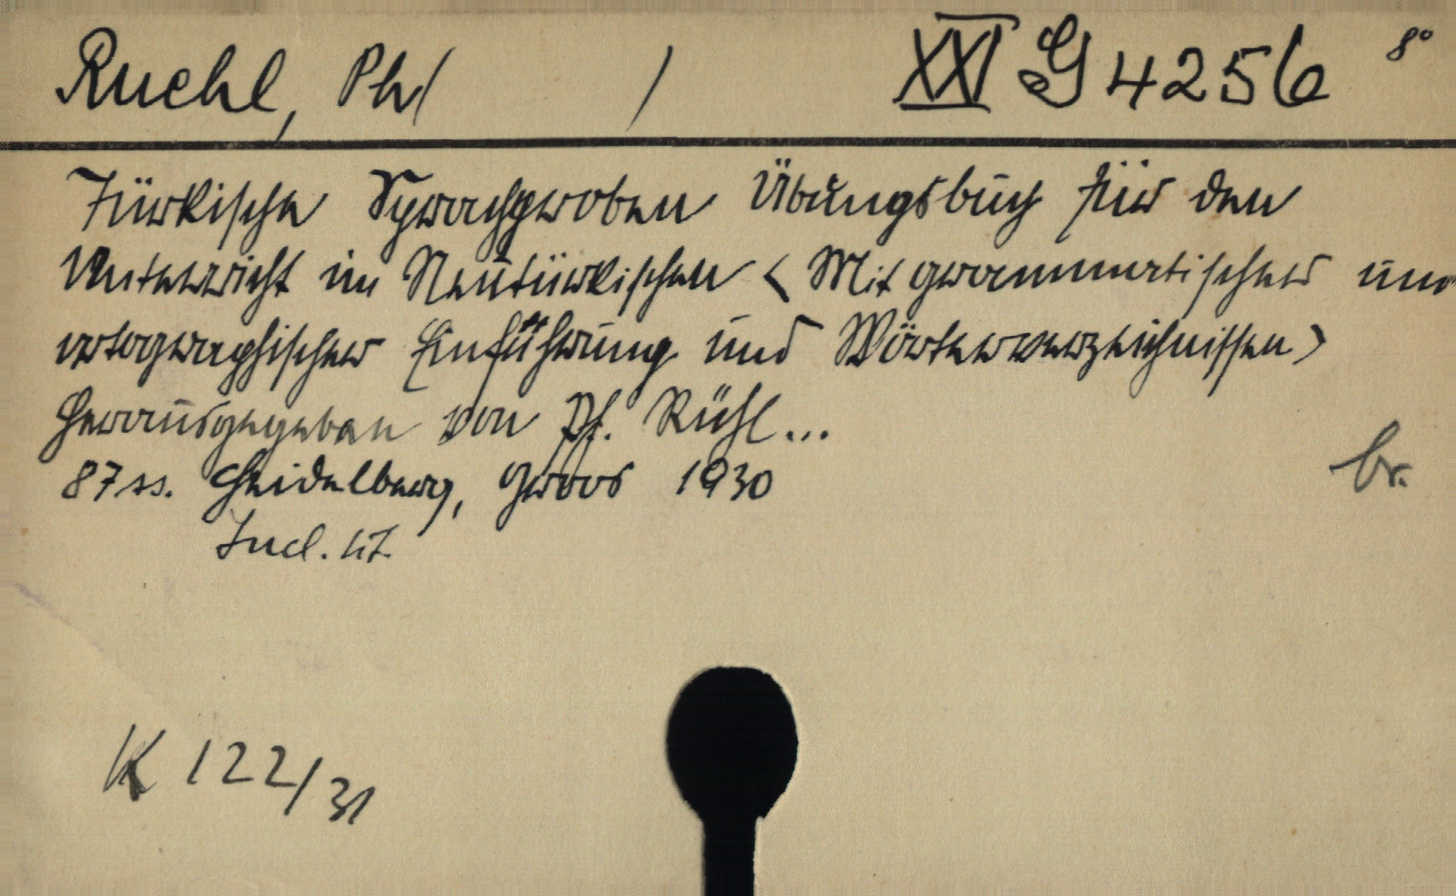 Ruehl, Ph( ) XXI G 4256 8°
Türkische Sprachproben Übungsbuch für den
Unterricht im Neutürkischen < Mit grammatischer und
ortographischer Einführung und Wörterverzeichnissen >
herausgegeben von Ph. Rühl...
87 ss. Heidelberg, Groos 1930
br.
K 122/31